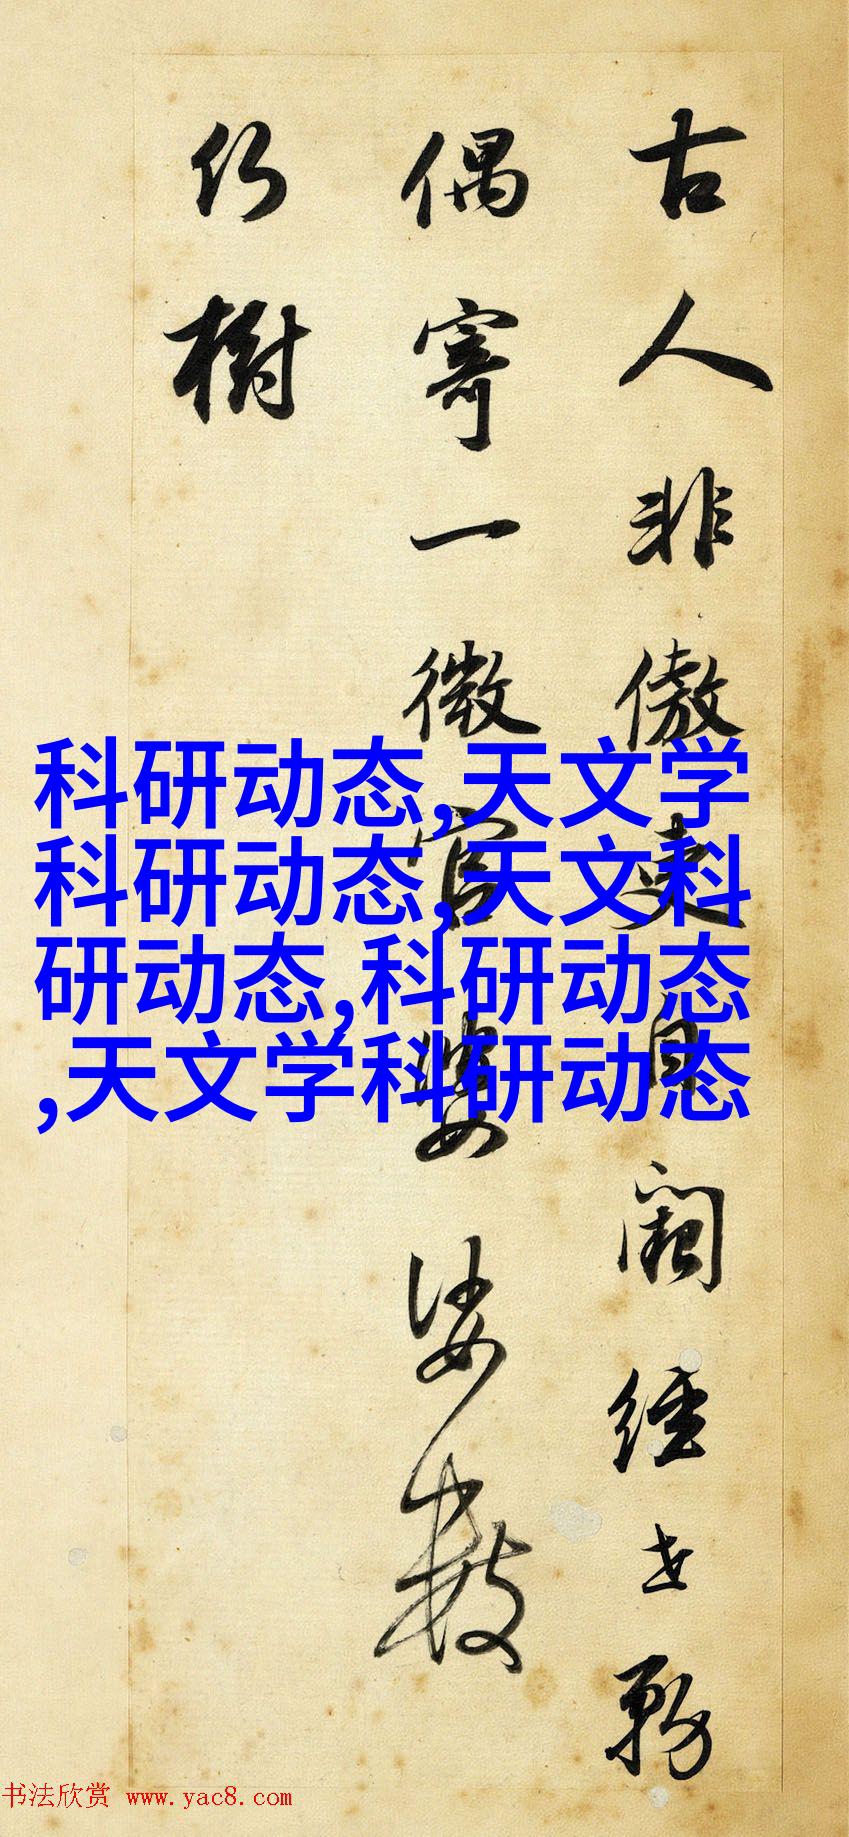 古人非傲吏自阙经世务
偶寄一微官婆娑数
行樹
科研动态,天文学
科研动态,天文科
研动态,科研动态
,天文学科研动态
书法欣赏 www.yac8.com